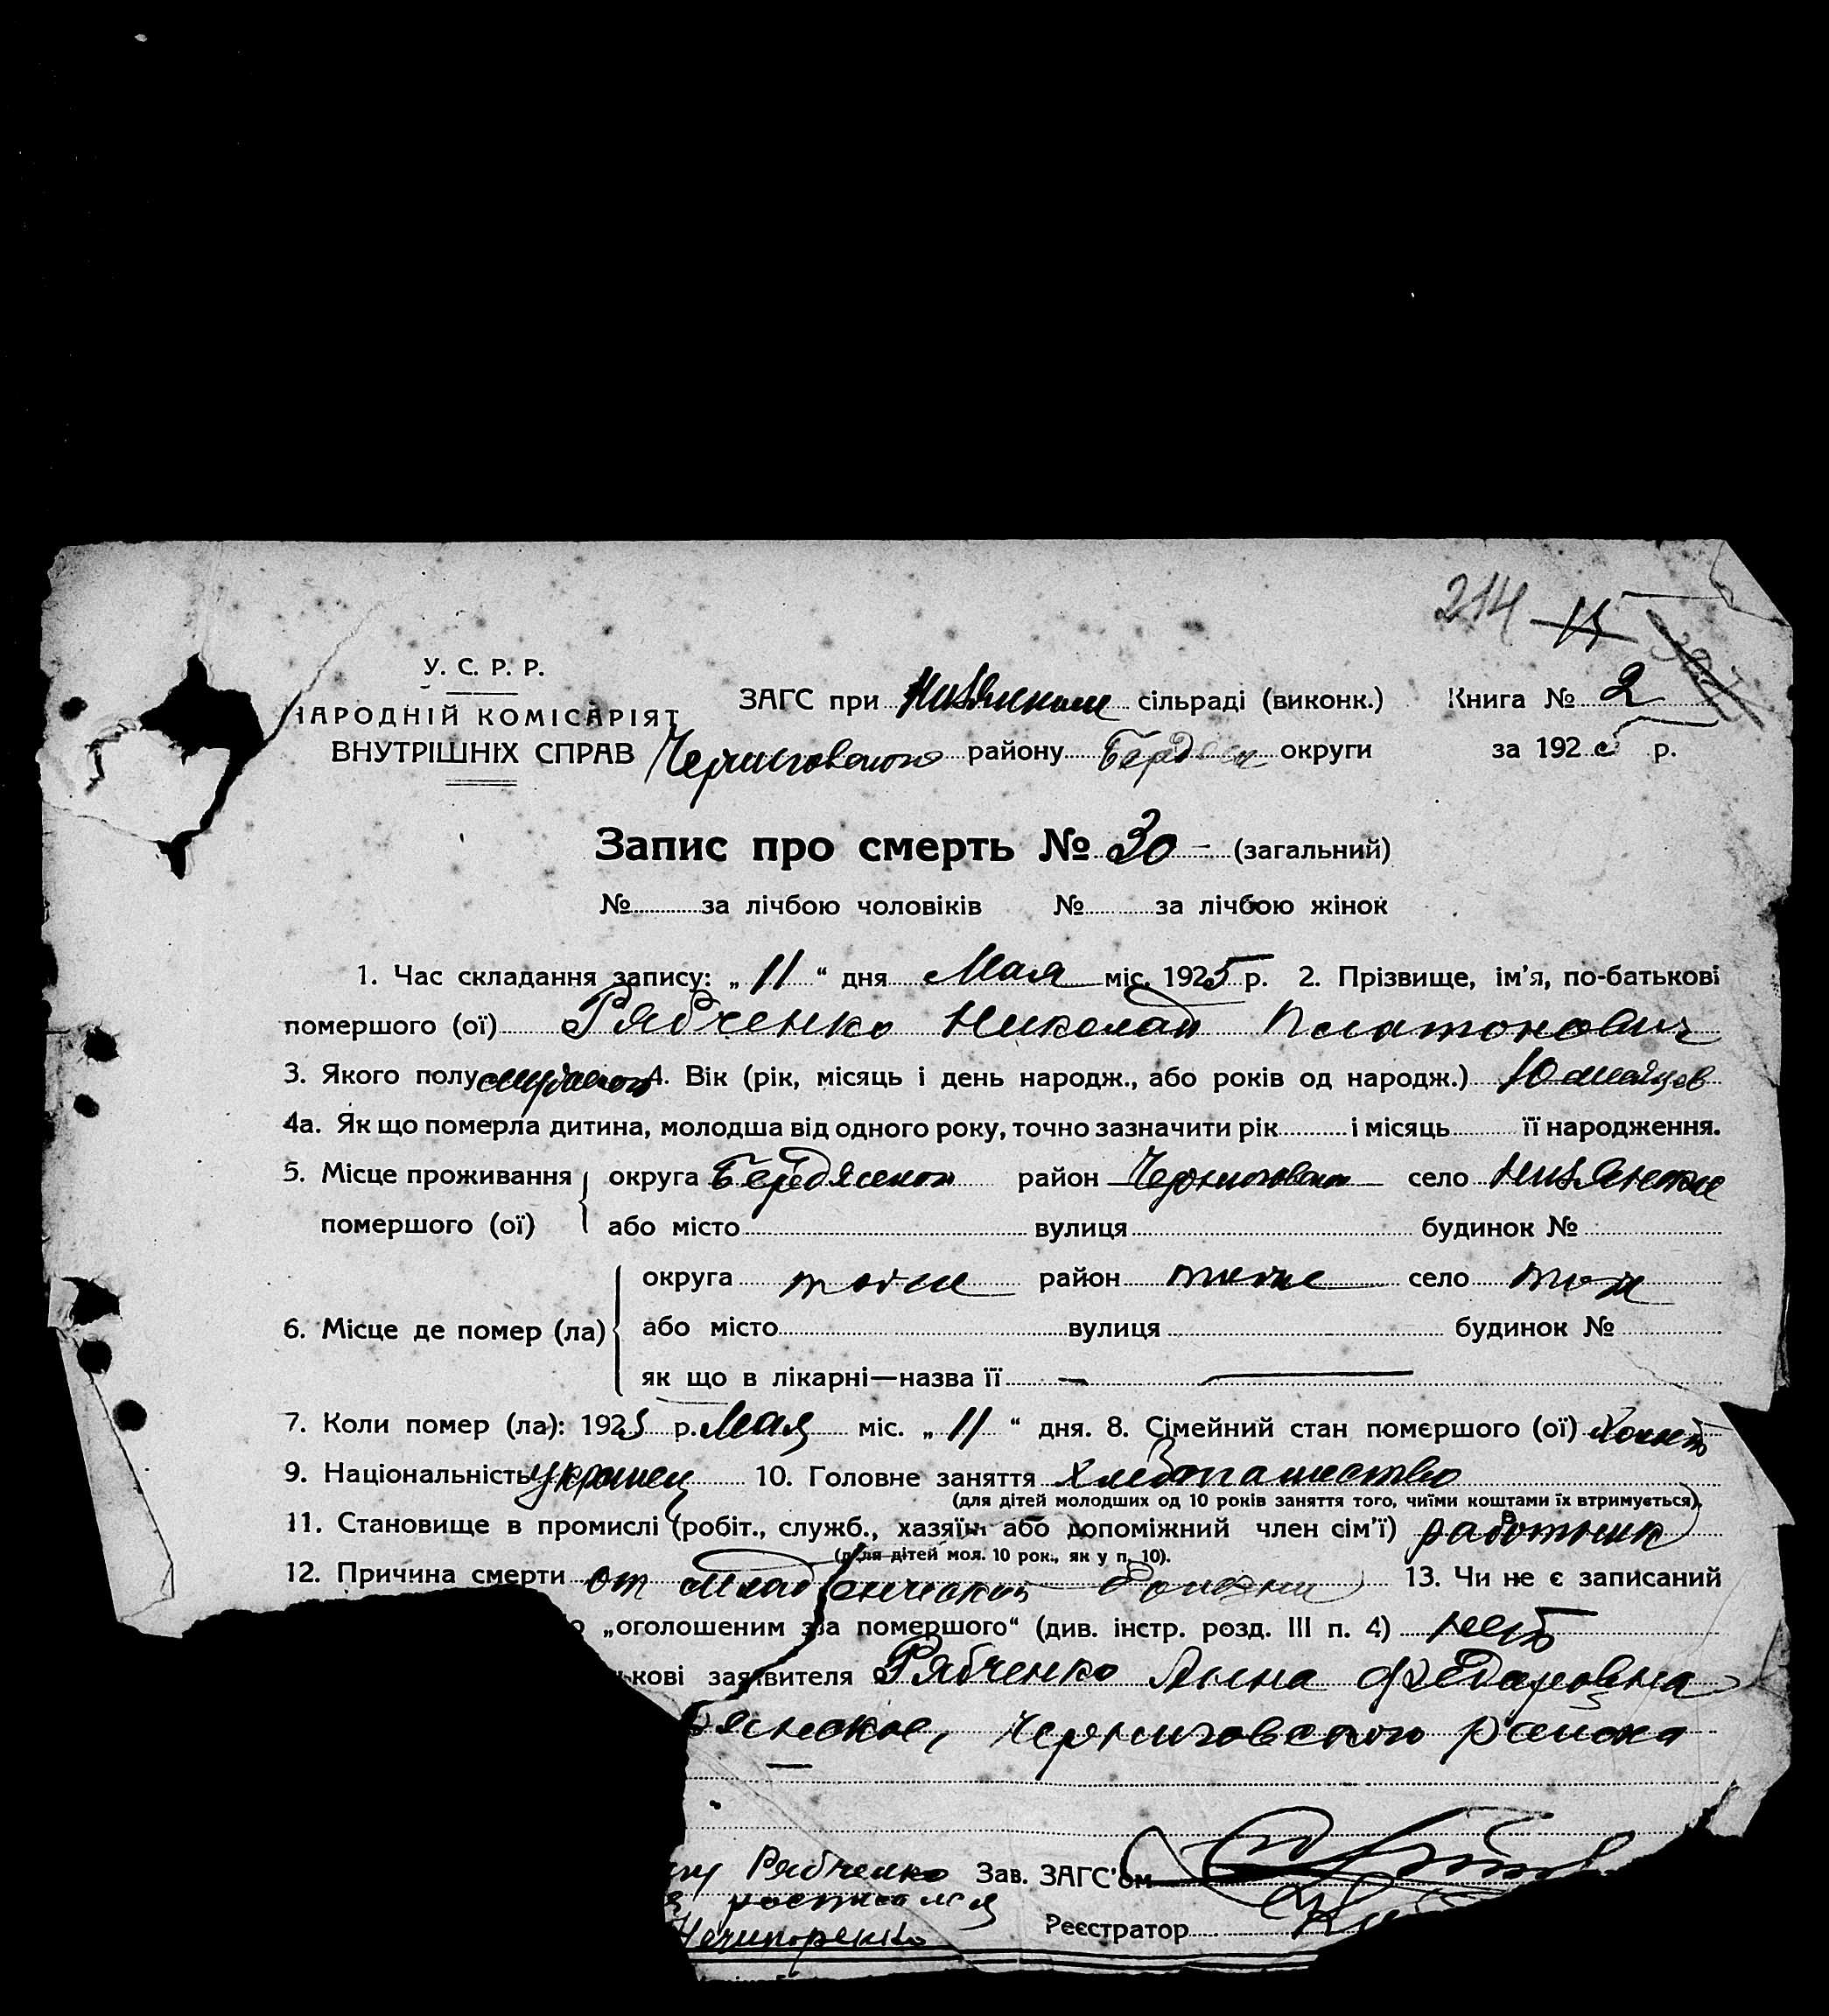 214 11
У. С. Р. Р.
НАРОДНІЙ КОМІСАРІЯТ
ВНУТРІШНІХ СПРАВ
ЗАГС при сільраді (виконк.) Книга № 2
Черниговского району Бердянск округи за 1925 р.
Запис про смерть № 30 – (загальний)
№ за лічбою чоловіків № за лічбою жінок
1. Час складання запису: „ 11 “ дня Мая міс. 1925 р. 2. Прізвище, ім’я, по-батькові
помершого (ої) Рябченко Николай Платонович
3. Якого полу мужеского 4. Вік (рік, місяць і день народж., або років од народж.) 10 месяцев
4а. Як що померла дитина, молодша від одного року, точно зазначити рік і місяць її народження.
5. Місце проживання помершого (ої) округа Бердянского район Черниговского село
або місто вулиця будинок №
6. Місце де помер (ла) округа тоже район тоже село тоже
або місто вулиця будинок №
як що в лікарні—назва її —
7. Коли помер (ла): 1925 р. Мая міс. „ 11 “ дня. 8. Сімейний стан помершого (ої) холост
9. Національність украинец 10. Головне заняття хлебопашество
(для дітей молодших од 10 років заняття того, чиїми коштами їх втримується).
11. Становище в промислі (робіт., служб., хазяїн або допоміжний член сім’ї) работник
(для дітей мол. 10 рок., як у п. 10).
12. Причина смерти от младенческой болезни 13. Чи не є записаний
„оголошеним за помершого“ (див. інстр. розд. III п. 4) нет
ькові заявителя Рябченко Анна Федаровна
янское, Черниговского района
Рябченко Зав. ЗАГС’ом
росписался
Нечипоренко Реєстратор